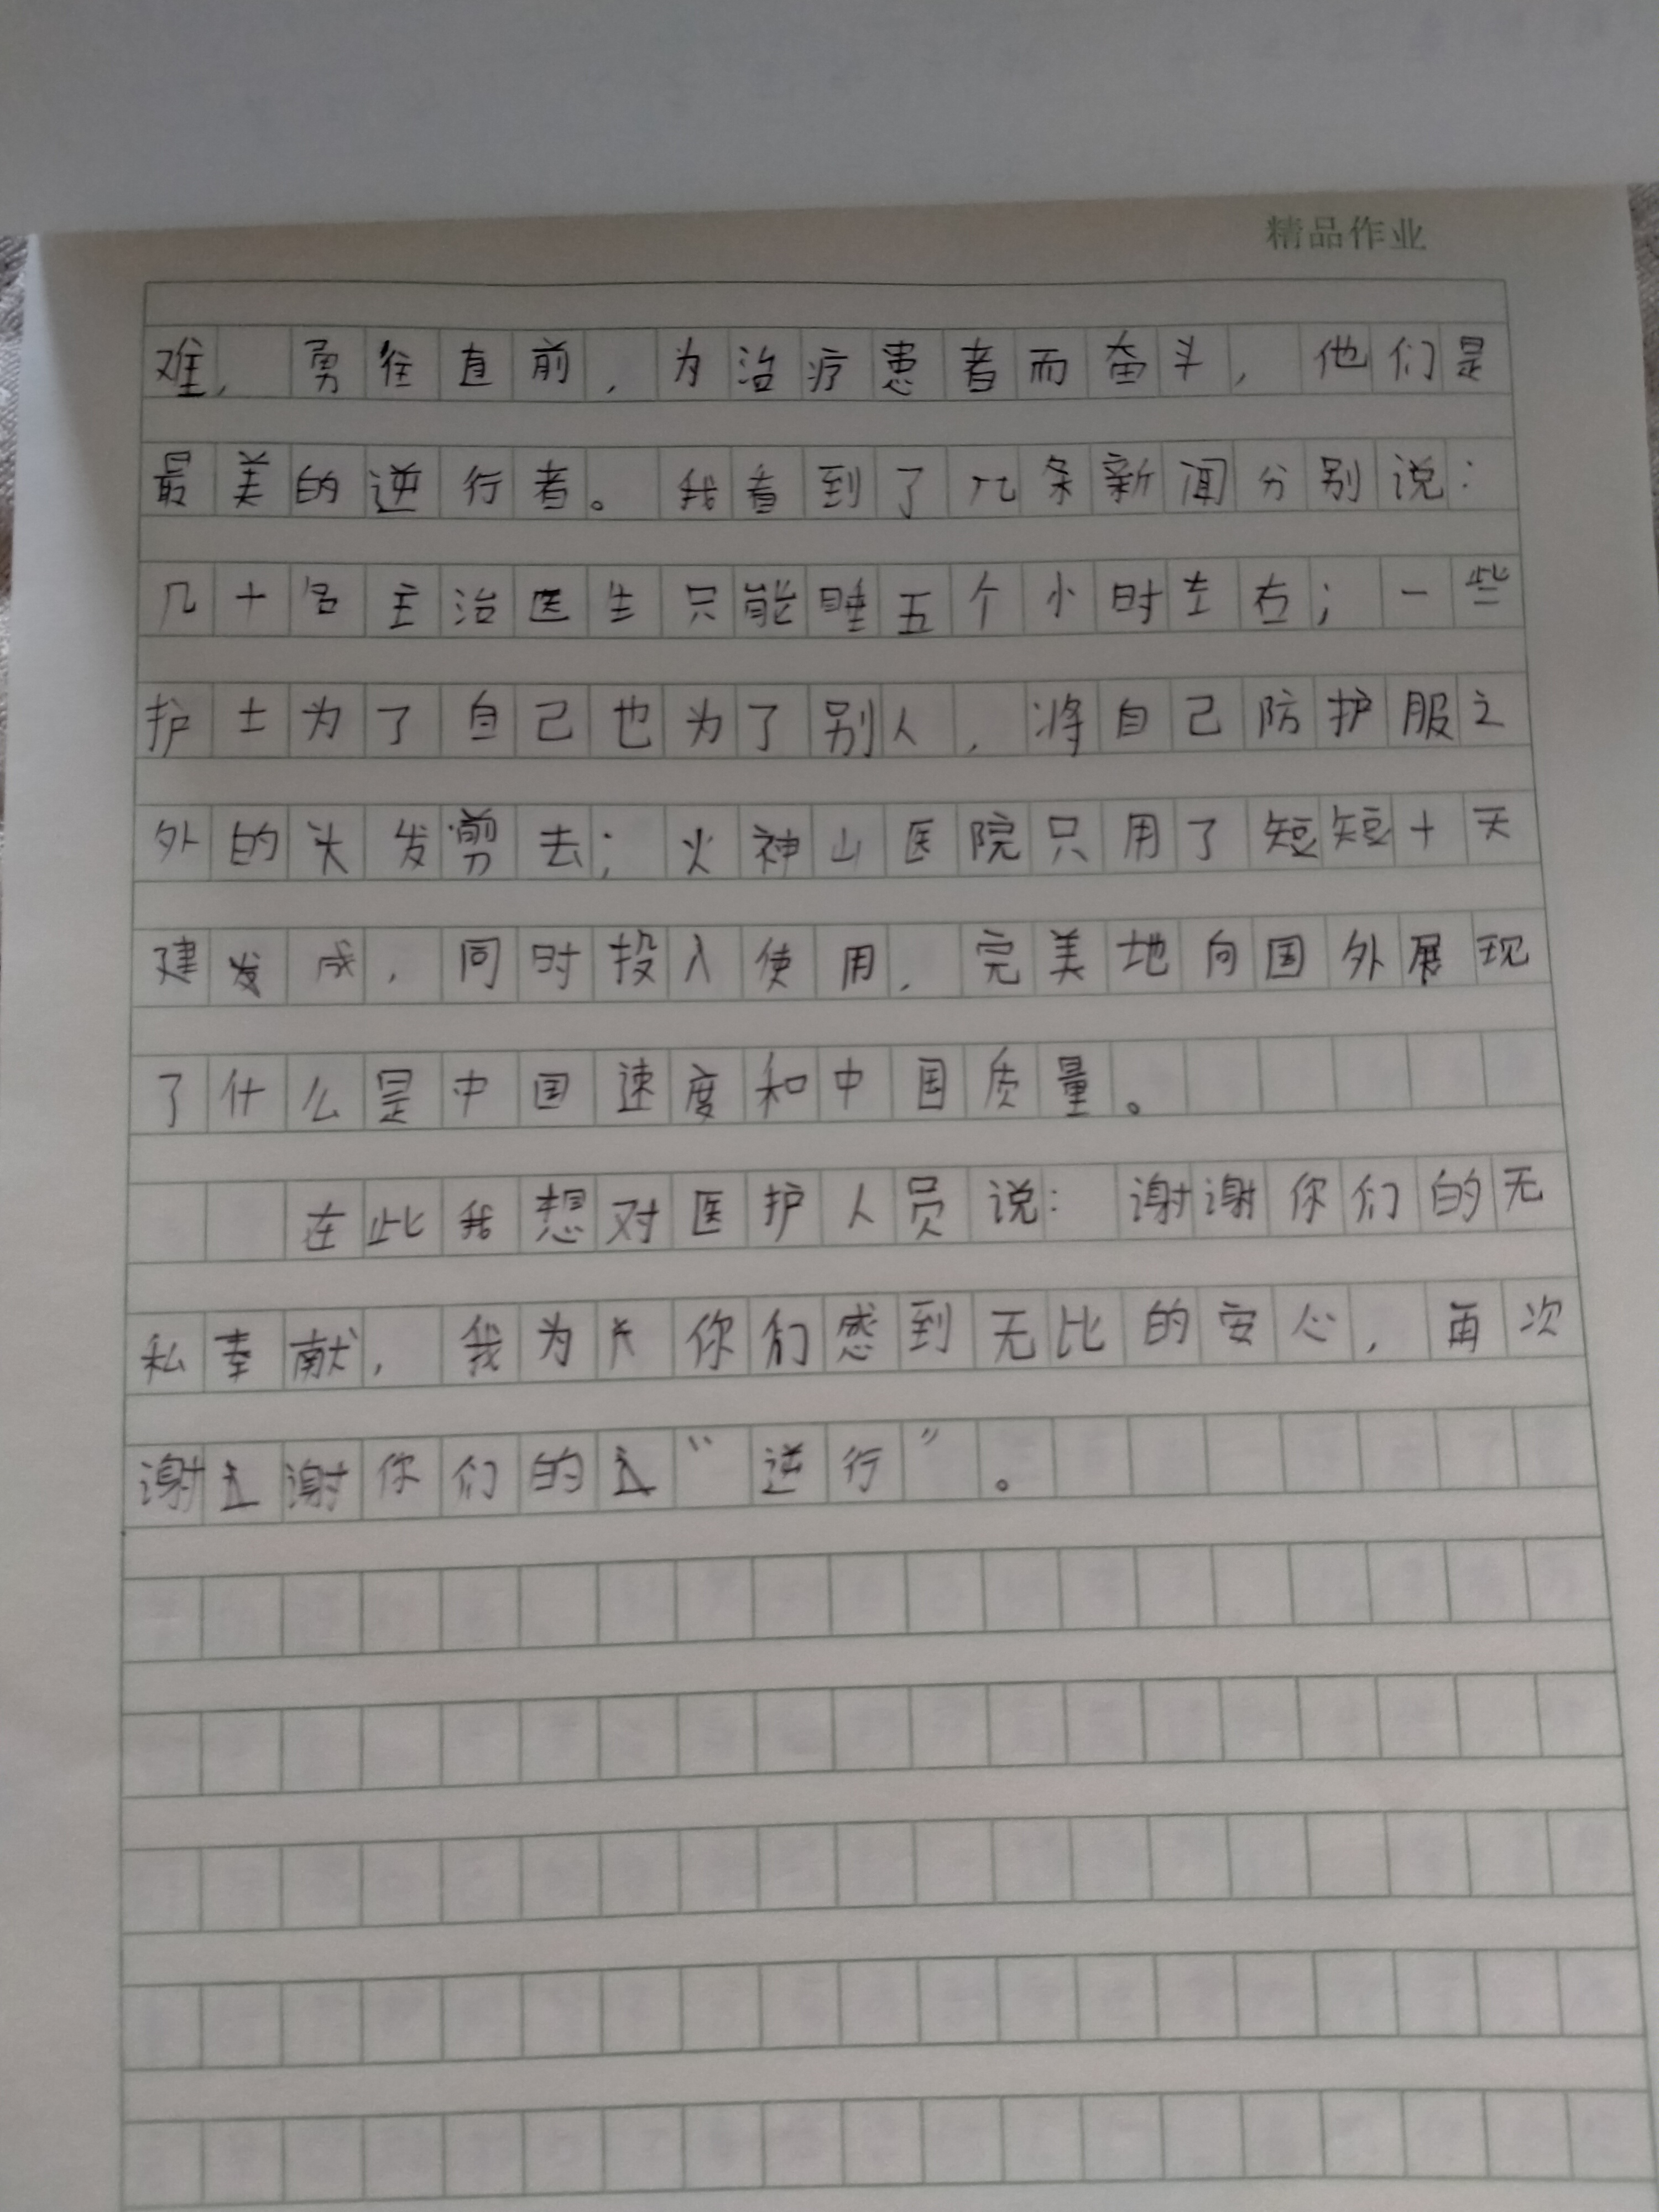 精品作业
难，勇往直前，为治疗患者而奋斗，他们是
最美的逆行者。我看到了几条新闻分别说：
几十名主治医生只能睡五个小时左右；一些
护士为了自己也为了别人，将自己防护服之
外的头发剪去；火神山医院只用了短短十天
建成，同时投入使用，完美地向国外展现
了什么是中国速度和中国质量。
在此我想对医护人员说：谢谢你们的无
私奉献，我为你们感到无比的安心，再次
谢谢你们的“逆行”。